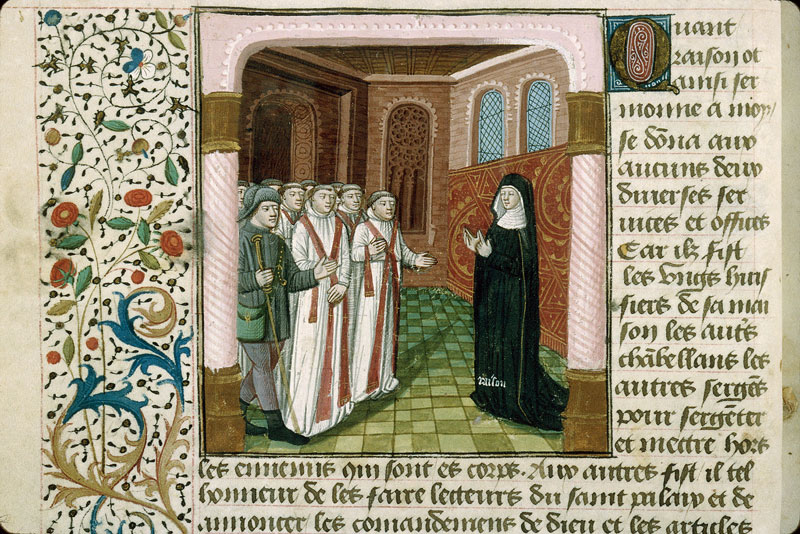 Quant
raison ot
ainsi ser
monne a moy
se dōna aux
aucuns deux
diverses ser
vices et offices
Car ilz fist
les ungs huis
siers de sa mai
son les autˢ
chābellans les
autres sergēs
pour sergēter
et mettre hors
les ennemis qui sont es corps. Aux autres fist il tel
honneur de les faire lecteurs du saint palaix et de
annoncer les comandemens de dieu et les articles
raison